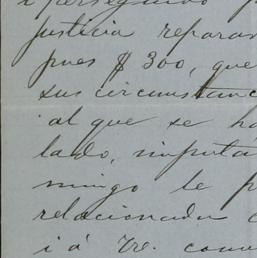 á perseguido
justicia reparan
pues $ 300, que
sus circunstanc
al que se ha
lado, imputá
mingo le p
relacionada c
i á Ve. com